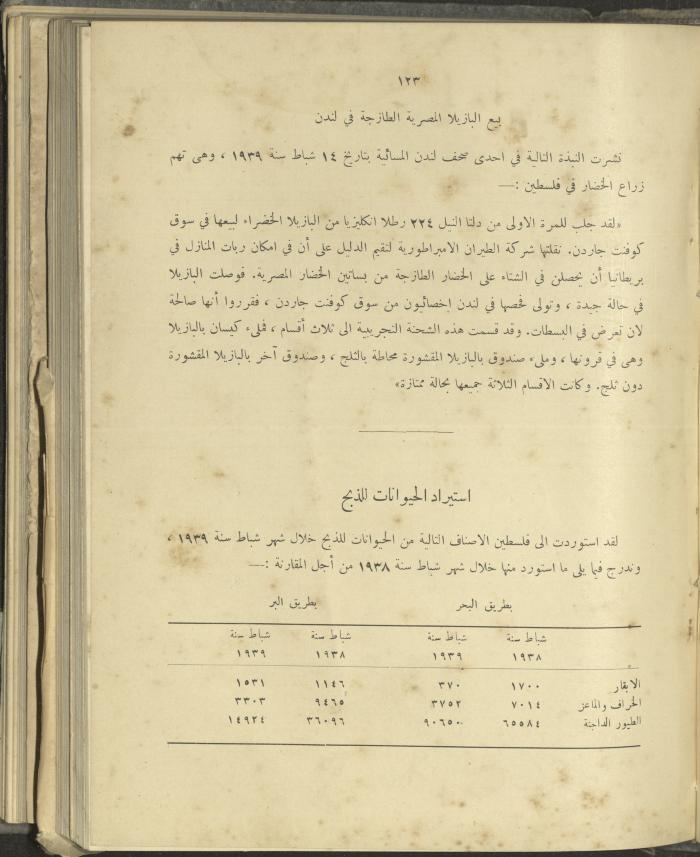 ١٢٣
بيع البازيلا المصرية الطازجة في لندن
نشرت النبذة التالية في احدى صحف لندن المسائية بتاريخ ١٤ شباط سنة ١٩٣٩ ، وهى تهم
زراع الخضار في فلسطين :—
«لقد جلب للمرة الاولى من دلتا النيل ٢٢٤ رطلا انكليزيا من البازيلا الخضراء لبيعها في سوق
كوفنت جاردن. نقلتها شركة الطيران الامبراطورية لتقيم الدليل على أن في امكان ربات المنازل في
بريطانيا أن يحصلن في الشتاء على الخضار الطازجة من بساتين الخضار المصرية. فوصلت البازيلا
في حالة جيدة ، وتولى فحصها في لندن إخصائيون من سوق كوفنت جاردن ، فقرروا أنها صالحة
لان تعرض في البسطات. وقد قسمت هذه الشحنة التجريبية الى ثلاث أقسام ، فملىء كيسان بالبازيلا
وهى في قرونها ، وملىء صندوق بالبازيلا المقشورة محاطة بالثلج ، وصندوق آخر بالبازيلا المقشورة
دون ثلج. وكانت الاقسام الثلاثة جميعها بحالة ممتازة»
استيراد الحيوانات للذبح
لقد استوردت الى فلسطين الاصناف التالية من الحيوانات للذبح خلال شهر شباط سنة ١٩٣٩ ،
وندرج فيما يلى ما استورد منها خلال شهر شباط سنة ١٩٣٨ من أجل المقارنة :—
بطريق البحر بطريق البر
شباط سنة شباط سنة شباط سنة شباط سنة
١٩٣٨ ١٩٣٩ ١٩٣٨ ١٩٣٩
الابقار ١٧٠٠ ٣٧٠ ١١٤٦ ١٥٣١
الخراف والماعز ٧٠١٤ ٣٧٥٢ ٩٤٦٥ ٣٣٠٣
الطيور الداجنة ٦٥٥٨٤ ٩٠٦٥٠ ٣٦٠٩٦ ١٤٩٢٤